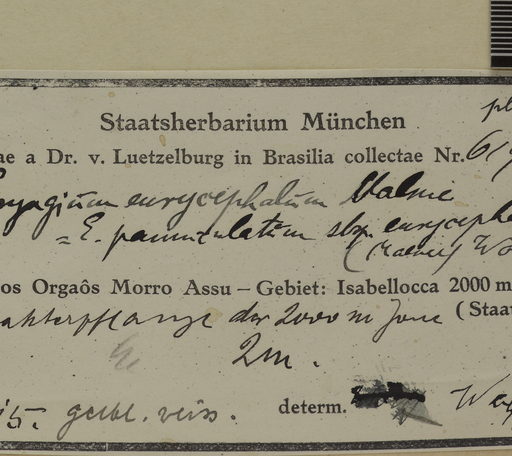 pl
Staatsherbarium München
ae a Dr. v. Luetzelburg in Brasilia collectae Nr. 619
ryngium eurycephalum Malme
= E. paniculatum sbsp. euryceph
(Malme) Wo
os Orgaôs Morro Assu – Gebiet: Isabellocca 2000 m
akterpflanze der 2000 m Zone (Staa
2m.
15. gelbl. weiss.
determ.